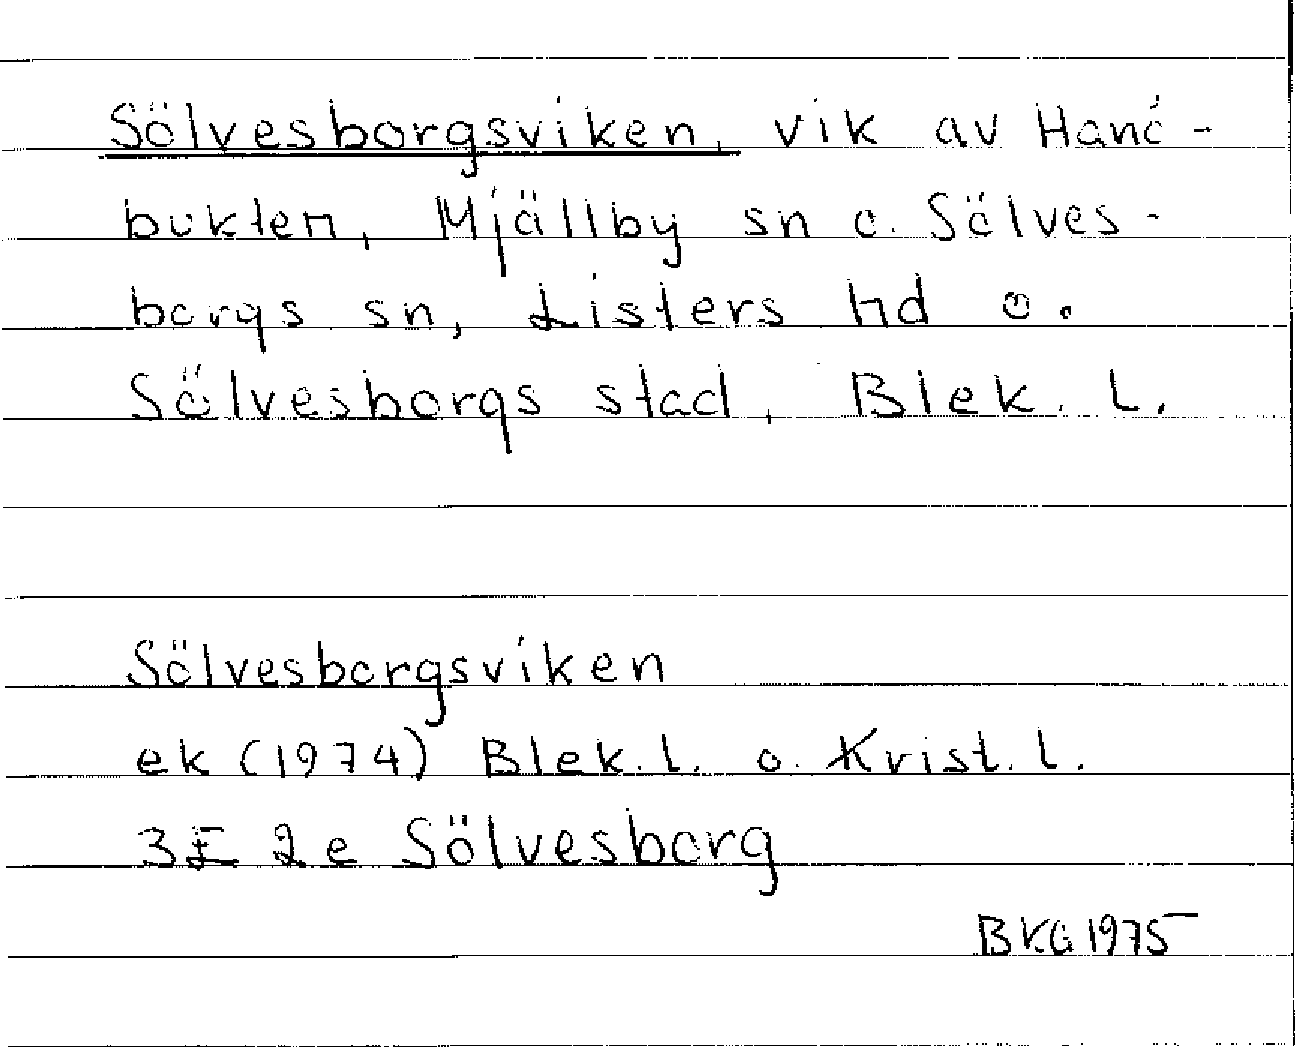 Sölvesborgsviken, vik av Hanö-
bukten, Mjällby sn o. Sölves-
borgs sn, Listers hd o.
Sölvesborgs stad, Blek. l.
Sölvesborgsviken
ek (1974) Blek. l. o. Krist. l.
3E 2e Sölvesborg
BKG 1975